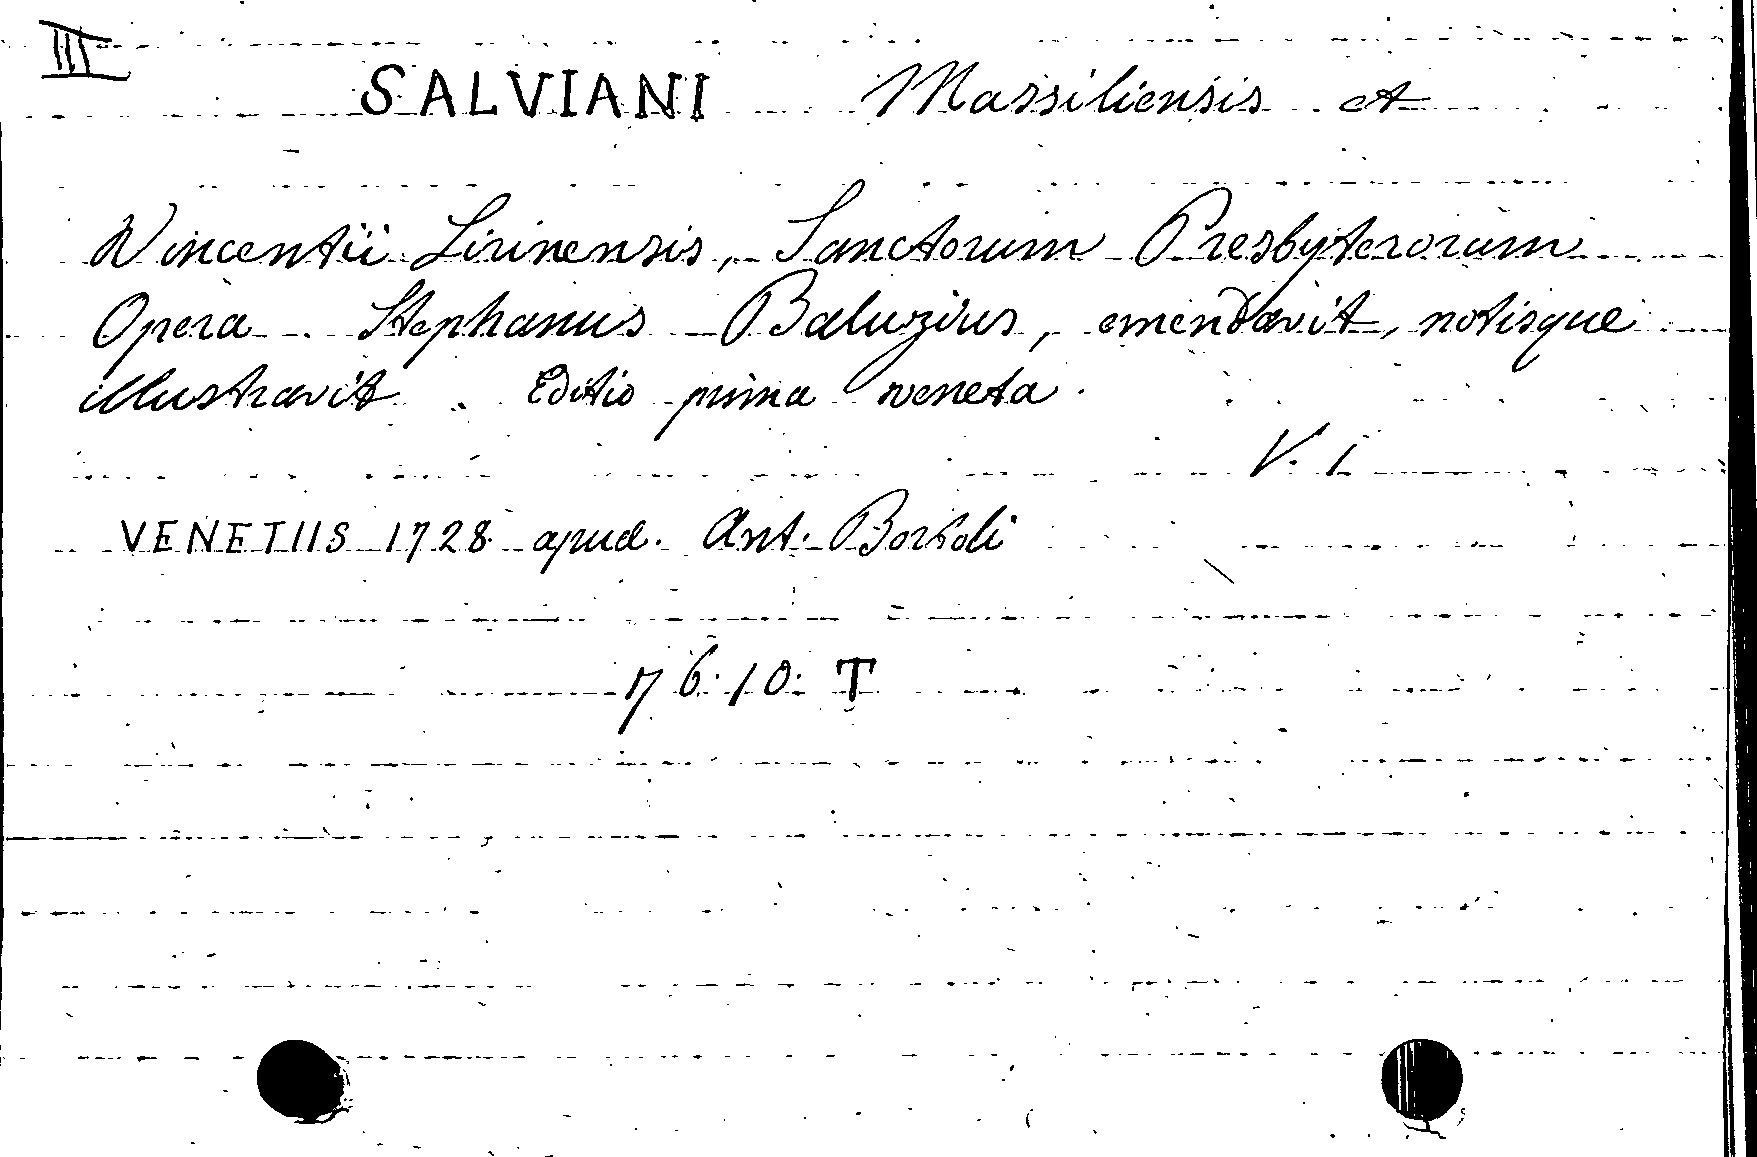 III
SALVIANI Massiliensis et
Vincentii Lirinensis, Sanctorum Presbyterorum
Opera. Stephanus Baluzius, emendavit, notisque
illustravit. Editio prima veneta.
V. 1
VENETIIS 1728 apud. Ant. Bortoli
76.10. T